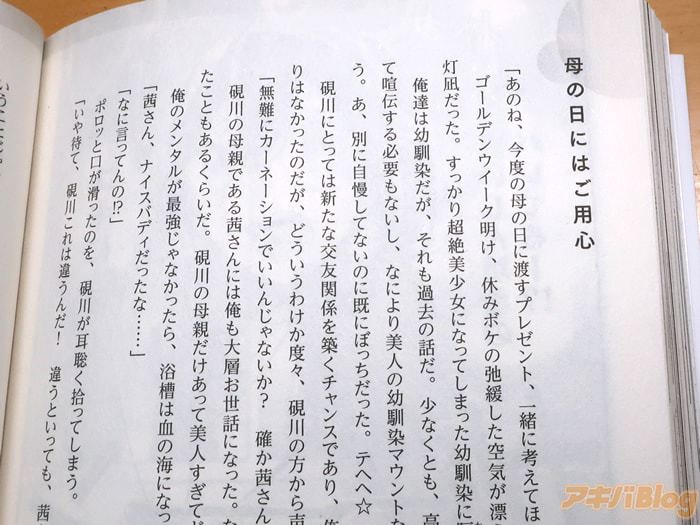 母の日にはご用心
「あのね、今度の母の日に渡すプレゼント、一緒に考えてほ
ゴールデンウイーク明け、休みボケの弛緩した空気が漂
灯凪だった。すっかり超絶美少女になってしまった幼馴染に
俺達は幼馴染だが、それも過去の話だ。少なくとも、高
て喧伝する必要もないし、なにより美人の幼馴染マウントな
う。あ、別に自慢してないのに既にぼっちだった。テヘヘ☆
硯川にとっては新たな交友関係を築くチャンスであり、俺
りはなかったのだが、どういうわけか度々、硯川の方から声
「無難にカーネーションでいいんじゃないか？　確か茜さん
硯川の母親である茜さんには俺も大層お世話になった。な
たこともあるくらいだ。硯川の母親だけあって美人すぎてど
俺のメンタルが最強じゃなかったら、浴槽は血の海になっ
「茜さん、ナイスバディだったな……」
「なに言ってんの!?」
ポロッと口が滑ったのを、硯川が耳聡く拾ってしまう。
「いや待て、硯川これは違うんだ！　違うといっても、茜
アキバBlog